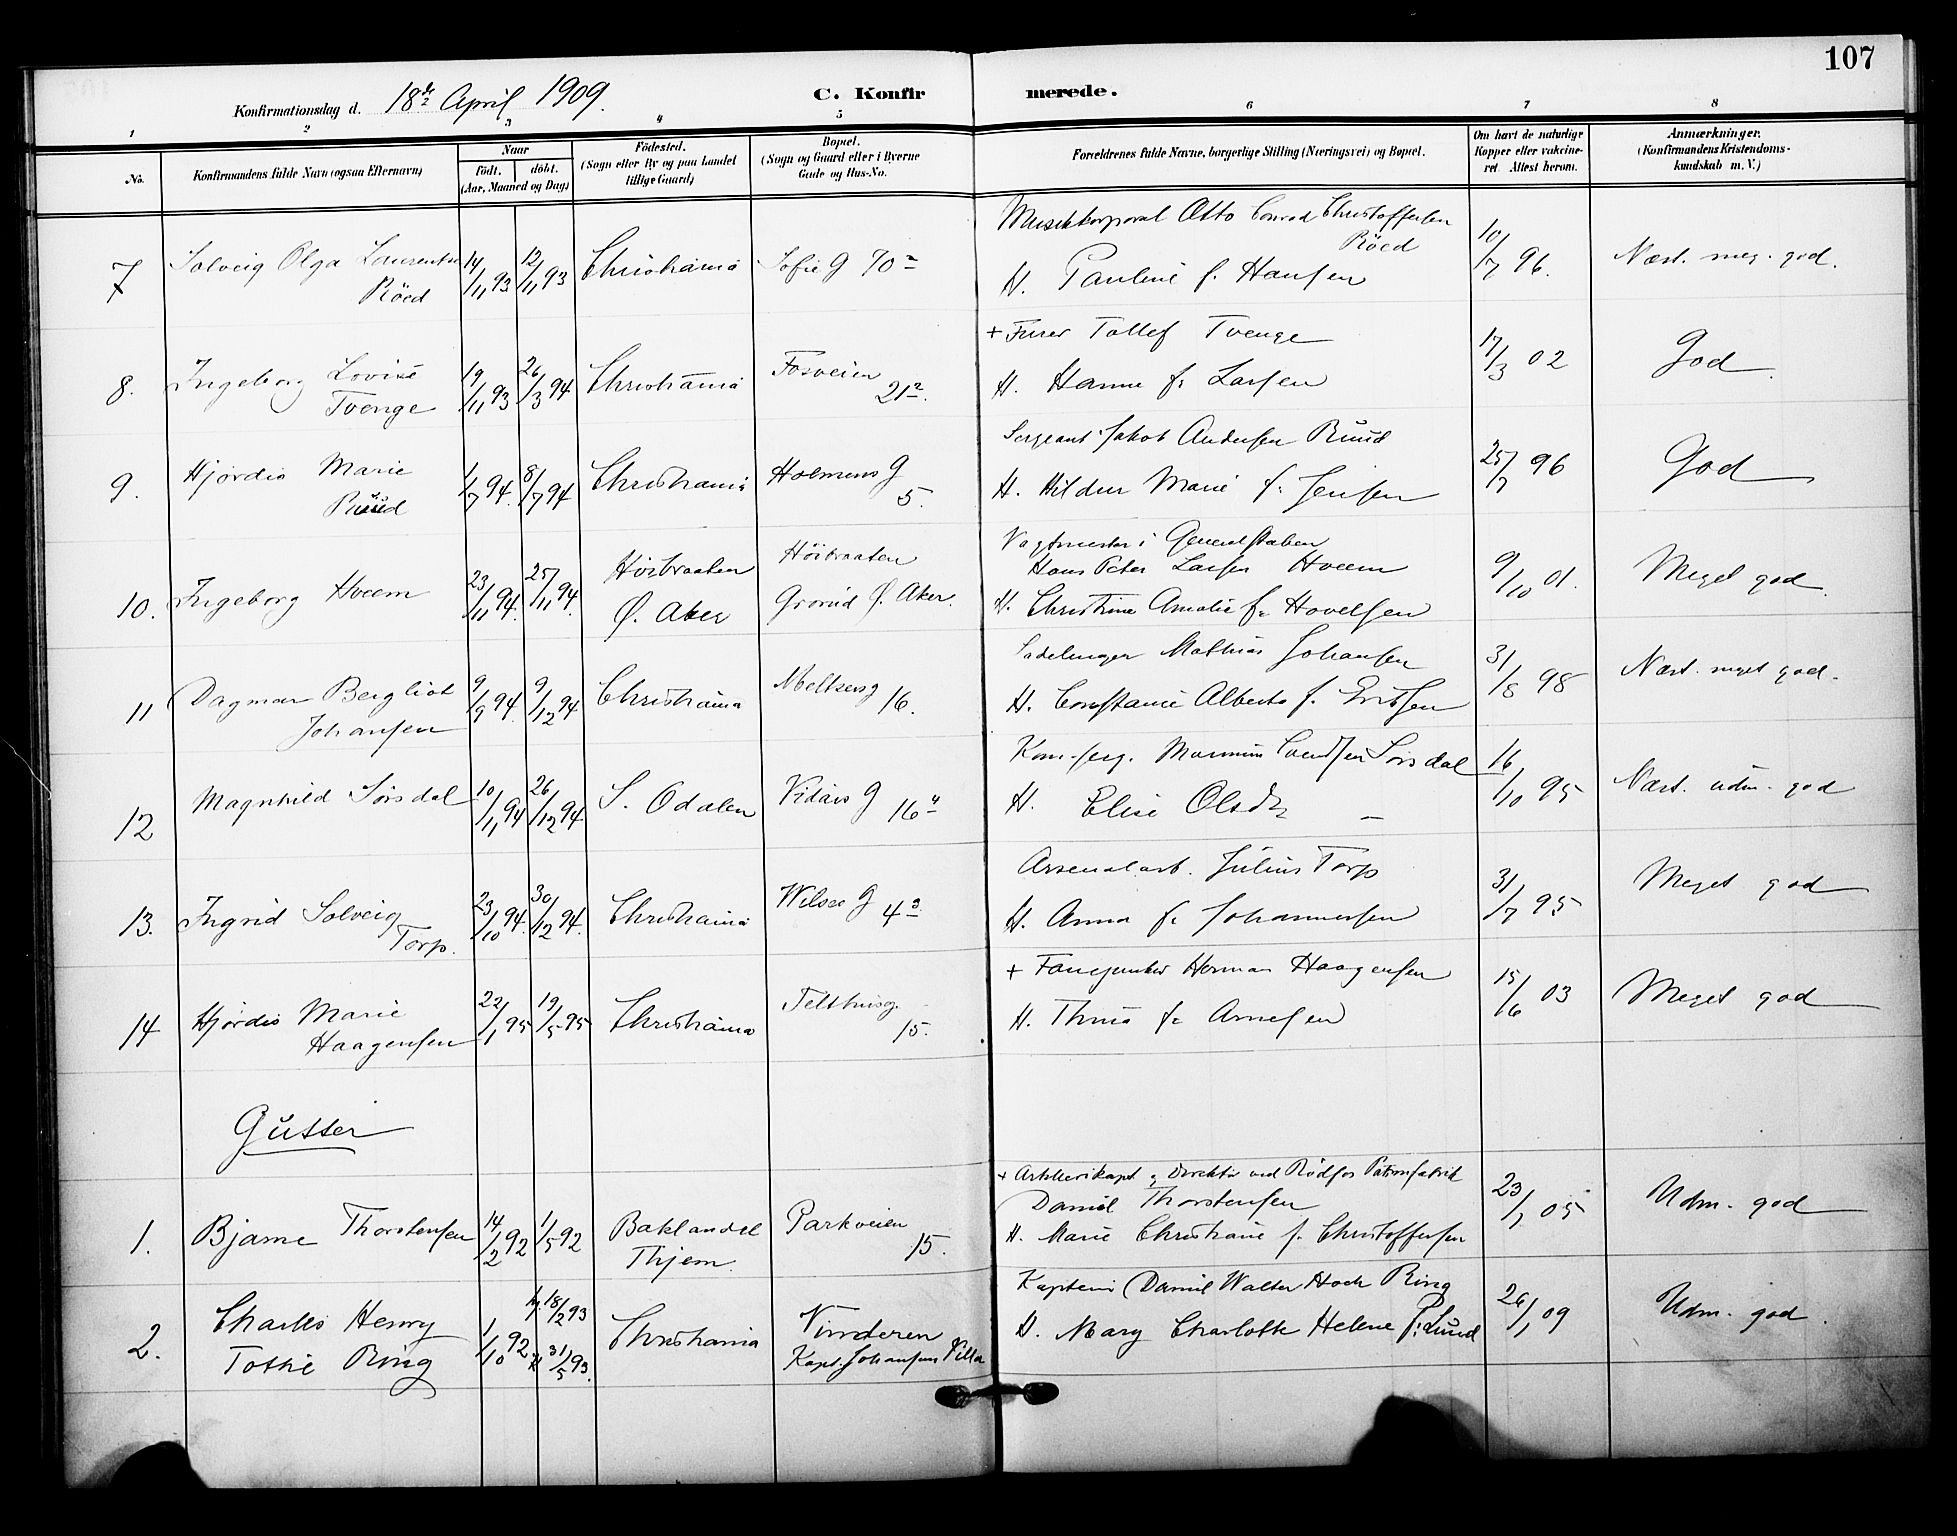 107
Konfirmationsdag d. 18de April 1909.
C. Konfirmerede.
1 2 3 4 5 6 7 8
No.
Konfirmandens fulde Navn (ogsaa Efternavn)
Naar
födt. döbt.
(Aar, Maaned og Dag)
Födested.
(Sogn eller By og paa Landet
tillige Gaard)
Bopæl.
(Sogn og Gaard eller i Byerne
Gade og Hus-No.
Forældrenes fulde Navne, borgerlige Stilling (Næringsvei) og Bopæl.
Om havt de naturlige
Kopper eller vakcine-
ret. Attest herom.
Anmærkninger.
(Konfirmandens Kristendoms-
kundskab m. V.)
7 Solveig Olga
Röed
14/11 93 12/11 93 Christiania Sofie G 70
Otto Conrad Christoffersen
Röed
H. Pauline f. Hansen
10/7 96. Næst. meg. god.
8. Ingeborg Lovise
Tvenge
19/11 93 26/3 94 Christiania Fosveien
21
+ Furer Tollef Tvenge
H. Hanna f: Larsen
17/3 02 God
9. Hjördis Marie
Ruud
1/7 94. 8/7 94 Christiania Holmens G
5.
Sergeant Jakob Andersen Ruud
H. Hildur Marie f. Jensen
25/7 96 God
10. Ingeborg Hveem
23/11 94. 25/11 94. Höibraaten
Ø. Aker
Höibraaten
Grorud Ø. Aker.
Vagtmester i Generalstaben
Hans Peter Larsen Hveem
H. Christine Amalie f. Hovelsen
9/10 01. Meget god.
11 Dagmar Bergliot
Johansen
9/9 94. 9/12 94 Christiania Meltzersg
16.
Sadelmager Mathias Johansen
H. Constance Alberta f. Eriksen
31/8 98 Næst. meget god.
12 Magnhild Sörsdal
10/11 94 26/12 94 S. Odalen Vidars G
16
Kom.serg. Svendsen Sörsdal
H. Elise Olsdtr
16/10 95 Næst. udm. god
13. Ingrid Solveig
Torp.
23/10 94. 30/12 94. Christiania Wilses G
4
Arsenalarb. Julius Torp
H. Anna f. Johannessen
31/7 95 Meget god
14 Hjördis Marie
Haagensen
22/1 95 19/5 95 Christiania Telthusg.
15.
+ Fanejunker Herman Haagensen
H. Thina f. Arnesen
15/6 03 Meget god
Gutter
1. Bjarne Thorstensen
14/2 92 1/5 92 Baklandet
Thjem.
Parkveien
15.
+ Artillerikapt. og Direktör ved Rödfos Patronfabrik
Daniel Thorstensen
H. Marie Christiane f. Christoffersen
23/1 05 Udm. god
2. Charles Henry
Tottie Ring
1/10 92 hj. 18/2 93
K 31/5 93.
Christiania Vinderen
Kapt. Johansens Villa
Kaptein Daniel Walter Hoch Ring
H. Mary Charlotte Helene f: Lund
26/1 09 Udm. god.